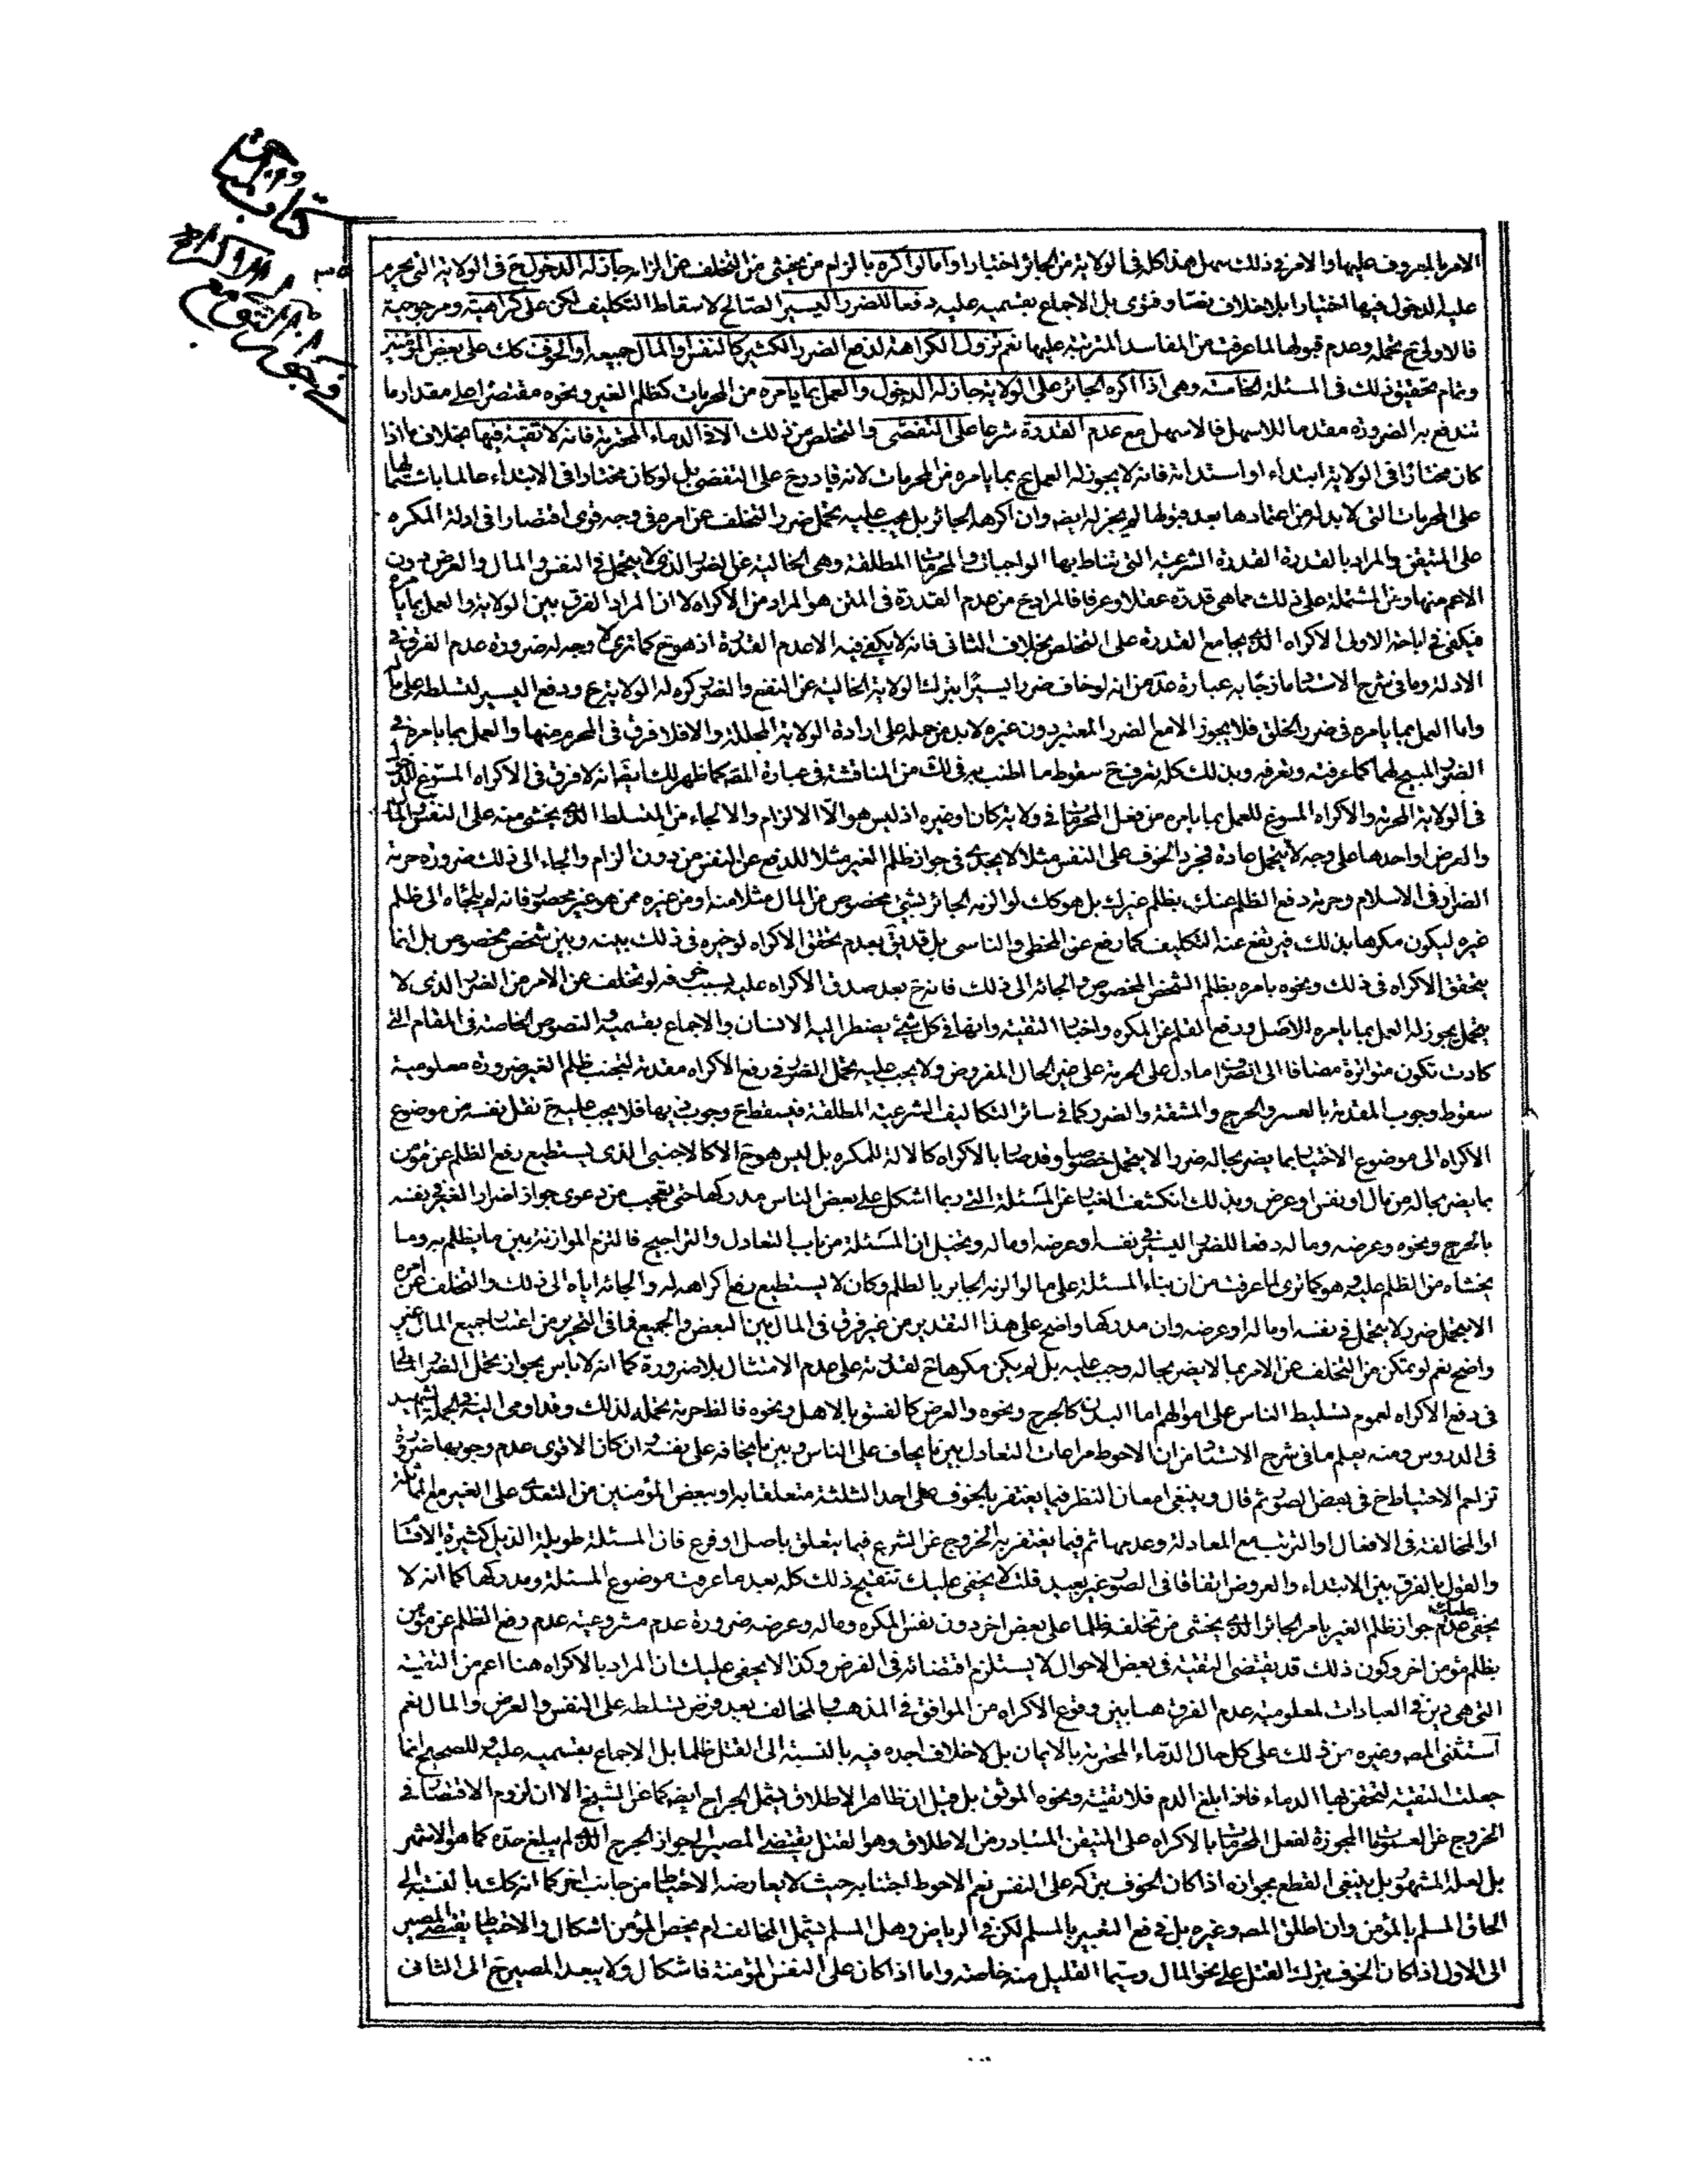 الامر بالمعروف عليها والامر في ذلك سهل هذا كله في الولاية من الجائر اختيارا واما لو اكره بالزام من يخشى من التخلف عن الزامه جاز له الدخول ح في الولاية التي يحرم
عليه الدخول فيها اختيارا بلا خلاف نصا وفتوى بل الاجماع بقسميه عليه دفعا للضرر اليسير الصالح لاسقاط التكليف لكن على كراهية ومرجوحية
فالاولى ح تحمله وعدم قبولها لما عرفت من المفاسد المترتبة عليها نعم تزول الكراهة لدفع الضرر الكثير كالنفس والمال جميعه او الخوف كك على بعض المؤمنين
وتمام تحقيق ذلك في المسئلة الخامسة وهى اذا اكره الجائر على الولاية جاز له الدخول والعمل بما يامره من المحرمات كظلم الغير ونحوه مقتصرا على مقدار ما
تندفع به الضرورة مقدما للاسهل فالاسهل مع عدم القدرة شرعا على التفصى والتخلص من ذلك الا في الدماء المحترمة فانه لا تقية فيها بخلاف ما اذا
كان مختارا في الولاية ابتداء او استدامة فانه لا يجوز له العمل ح بما يامره من المحرمات لانه قادر ح على التفصى بل لو كان مختارا في الابتداء عالما باشتمالها
على المحرمات التى لا بد له من اعتمادها بعد قبولها لم يجز له ايض وان اكرهه الجائر بل يجب عليه تحمل ضرر التخلف عن امره في وجه قوى اقتصارا في ادلة المكره
على المتيقن والمراد بالقدرة القدرة الشرعية التى تناط بها الواجبات والمحرمات المطلقة وهى الخالية عن الضرر الذى لا يتحمل في النفس والمال والعرض دون
الاعم منها ومن المشتملة على ذلك مما هى قدرة عقلا وعرفا فالمراد ح من عدم القدرة في المتن هو المراد من الاكراه لا ان المراد الفرق بين الولاية والعمل بما يامره
فيكفى في اباحة الاولى الاكراه الذى يجامع القدرة على التخلص بخلاف الثانى فانه لا يكفى فيه الا عدم القدرة اذ هو ح كما ترى لا وجه له ضرورة عدم الفرق في
الادلة وما في شرح الاستاد مازجا به عبارة عد من انه لو خاف ضررا يسيرا بترك الولاية الخالية عن النفع والضرر كره له الولاية ح ودفع اليسير لتسلطه على ماله
واما العمل بما يامره في ضرر الخلق فلا يجوز الا مع الضرر المعتبر دون غيره لا بد من حمله على ارادة الولاية المحللة والا فلا فرق في المحرم منها والعمل بما يامره في
الضرر المبيح لهما كما عرفته وتعرفه وبذلك كله تعرف ح سقوط ما اطنب به في لك من المناقشة في عبارة المص كما ظهر لك ايضا انه لا فرق في الاكراه المسوغ للدخول
في الولاية المحرمة والاكراه المسوغ للعمل بما يامره من فعل المحرمات في ولاية كان او غيره اذ ليس هو الا الالزام والالجاء من المتسلط الذى يخشى منه على النفس والمال
والعرض او احدها على وجه لا يتحمل عادة فمجرد الخوف على النفس مثلا لا يجدى في جواز ظلم الغير مثلا للدفع عن النفس من دون الزام والجاء الى ذلك ضرورة حرمة
الضرار في الاسلام وحرمة دفع الظلم عنك بظلم غيرك بل هو كك لو الزمه الجائر بشئ مخصوص من المال مثلا منه او من غيره ممن هو غير محصور فانه لم يلجئه الى ظلم
غيره ليكون مكرها بذلك فيرتفع عنه التكليف كما رفع عن المخطى والناسى بل قد يق بعدم تحقق الاكراه لو خيره في ذلك بينه وبين شخص مخصوص بل انما
يتحقق الاكراه في ذلك ونحوه بامره بظلم الشخص المخصوص والجائه الى ذلك فانه ح بعد صدق الاكراه عليه بسبب خوفه لو تخلف عن الامر من الضرر الذى لا
يتحمل يجوز له العمل بما يامره للاصل ورفع القلم عن المكره واخبار التقية وانها في كل شئ يضطر اليه الانسان والاجماع بقسميه والنصوص الخاصة في المقام التى
كادت تكون متواترة مضافا الى انصراف ما دل على الحرمة على غير الحال المفروض ولا يجب عليه تحمل الضرر في رفع الاكراه مقدمة لتجنب ظلم الغير ضرورة معلومية
سقوط وجوب المقدمة بالعسر والحرج والمشقة والضرر كما في سائر التكاليف الشرعية المطلقة فيسقط ح وجوب ذيها فلا يجب عليه ح نقل نفسه من موضوع
الاكراه الى موضوع الاختيار بما يضر بحاله ضررا لا يتحمل خصوصا وقد صار بالاكراه كالالة للمكره بل ليس هو ح الا كالاجنبى الذى يستطيع رفع الظلم عن مؤمن
بما يضر بحاله من مال او نفس او عرض وبذلك انكشف الغبار عن المسئلة التى ربما اشكل على بعض الناس مدركها حتى تعجب من دعوى جواز اضرار الغير في نفسه
بالجرح ونحوه وعرضه وماله دفعا للضرر اليسير في نفسه او عرضه او ماله وتخيل ان المسئلة من باب التعادل والتراجيح فالتزم الموازنة بين ما يظلم به وما
يخشاه من الظلم عليه وهو كما ترى لما عرفت من ان بناء المسئلة على ما لو الزمه الجاير بالظلم وكان لا يستطيع رفع اكراهه له والجائه اياه الى ذلك والتخلف عن امره
الا بتحمل ضرر لا يتحمل في نفسه او ماله او عرضه وان مدركها واضح على هذا التقدير من غير فرق في المال بين البعض والجميع فما في التحرير من اعتبار جميع المال غير
واضح نعم لو تمكن من التخلف عن الامر بما لا يضر بحاله وجب عليه بل لم يكن مكرها ح لقدرته على عدم الامتثال بلا ضرورة كما انه لا باس بجواز تحمل الضرر المالى
في دفع الاكراه لعموم تسليط الناس على اموالهم اما البدن كالجرح ونحوه والعرض كالفسق بالاهل ونحوه فالظ حرمة تحمله لذلك وقد اومى اليه في الجملة الشهيد
في الدروس ومنه يعلم ما في شرح الاستاد من ان الاحوط مراعات التعادل بين ما يخاف على الناس وبين ما يخافه على نفسه وان كان الاقوى عدم وجوبها ضرورة
تزاحم الاحتياط ح في بعض الصور ثم قال وينبغى امعان النظر فيما يغتفر بالخوف على احد الثلثة متعلقا به او ببعض المؤمنين من التعدى على الغير مع المماثلة
او المخالفة في الافعال او الترتيب مع المعادلة وعدمها ثم فيما يغتفر به الخروج عن الشرع فيما يتعلق باصل او فرع فان المسئلة طويلة الذيل كثيرة الاقسام
والقول بالفرق بين الابتداء والعروض اتفاقا في الصور غير بعيد قلت لا يخفى عليك تنقيح ذلك كله بعد ما عرفت موضوع المسئلة ومدركها كما انه لا
يخفى عليك عدم جواز ظلم الغير بامر الجائر الذى يخشى من تخلفه ظلما على بعض اخر دون نفس المكره وماله وعرضه ضرورة عدم مشروعية عدم رفع الظلم عن مؤمن
بظلم مؤمن اخر وكون ذلك قد يقتضى التقية في بعض الاحوال لا يستلزم اقتضائه في الفرض وكذا لا يخفى عليك ان المراد بالاكراه هنا اعم من التقية
التى هى دين في العبادات لمعلومية عدم الفرق هنا بين وقوع الاكراه من الموافق في المذهب والمخالف بعد فرض تسلطه على النفس والعرض والمال نعم
استثنى المص وغيره من ذلك على كل حال الدماء المحترمة بالايمان بل لا خلاف اجده فيه بالنسبة الى القتل ظلما بل الاجماع بقسميه عليه وللصحيح انما
جعلت التقية لتحقن بها الدماء فاذا بلغ الدم فلا تقية ونحوه الموثق بل قيل ان ظاهر الاطلاق يشمل الجراح ايض كما عن الشيخ الا ان لزوم الاقتصار في
الخروج عن العمومات المجوزة لفعل المحرمات بالاكراه على المتيقن المتبادر من الاطلاق وهو القتل يقتضى المصير الى جواز الجرح الذى لم يبلغ حده كما هو الاشهر
بل لعله المشهور بل ينبغى القطع بجوازه اذا كان الخوف بتركه على النفس نعم الاحوط اجتنابه حيث لا يعارضه الاحتياط من جانب اخر كما انه كك بالنسبة الى
الحاق المسلم بالمؤمن وان اطلق المص وغيره بل في فع التعبير بالمسلم لكن في الرياض وهل المسلم يشمل المخالف ام يخص المؤمن اشكال والاحتياط يقتضى المصير
الى الاول اذا كان الخوف بترك القتل على نحو المال وسيما القليل منه خاصة واما اذا كان على النفس المؤمنة فاشكال ولا يبعد المصير ح الى الثانى